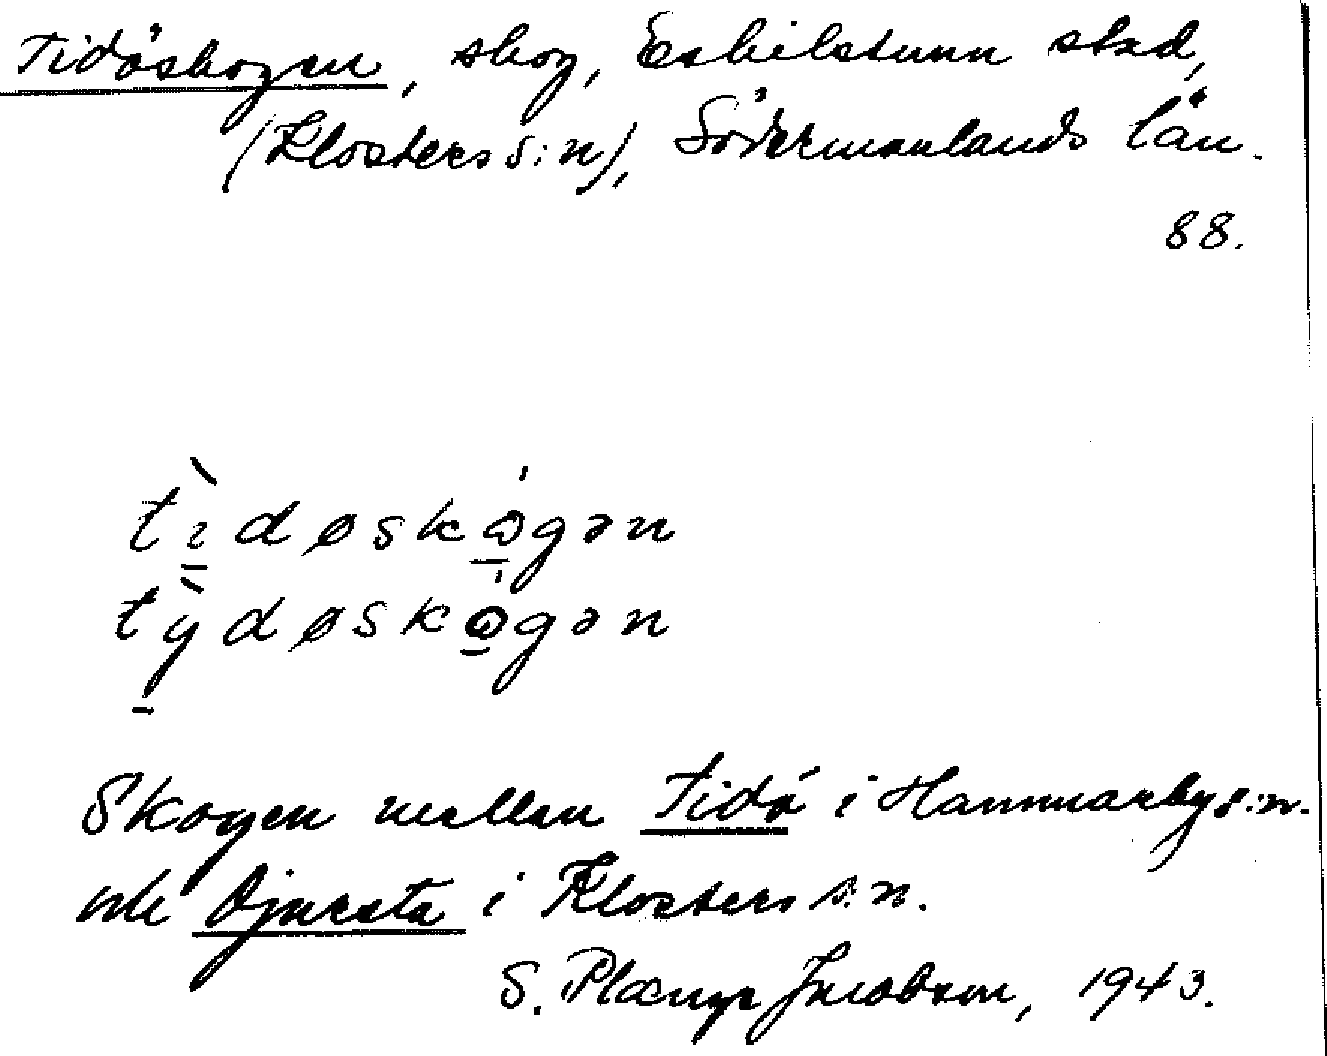 Tidöskogen, skog, Eskilstuna stad,
(Klosters s:n), Södermanlands län.
88.
tɩ̀døskɷ́gən
tỳdøskɷ́gən
Skogen mellan Tidö i Hammarby s:n.
och Djursta i Klosters s:n.
S. Jacobson, 1943.